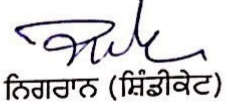 ਨਿਗਰਾਨ (ਸ਼ਿੰਡੀਕੇਟ)